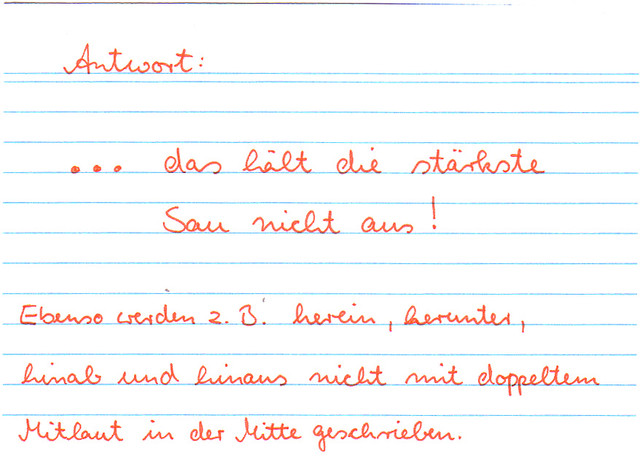 Antwort:
... das hält die stärkste
Sau nicht aus!
Ebenso werden z. B. herein, herunter,
hinab und hinaus nicht mit doppeltem
Mitlaut in der Mitte geschrieben.